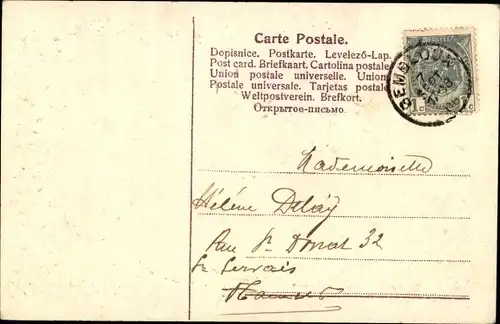 Carte Postale.
Dopisnice. Postkarte. Levelező-Lap.
Post card. Briefkaart. Cartolina postale
Union postale universelle. Union
Postale universale. Tarjetas postale
Weltpostverein. Brefkort.
Открытое-письмо
GEMBLOUX
1c c
Mademoiselle
Hélène Delay
Rue St Donat 32
St Servais